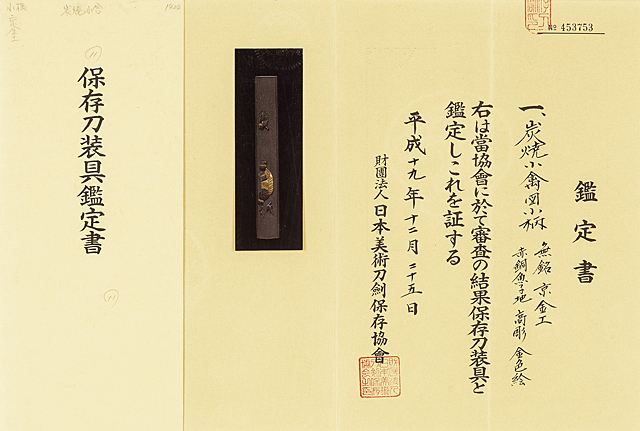 鑑定書
№ 453753
一、炭焼小禽図小柄
無銘 京金工
赤銅魚子地 高彫 金色絵
右は當協會に於て審査の結果保存刀装具と
鑑定しこれを証する
平成十九年十二月二十五日
財團法人日本美術刀劍保存協會
保存刀装具鑑定書